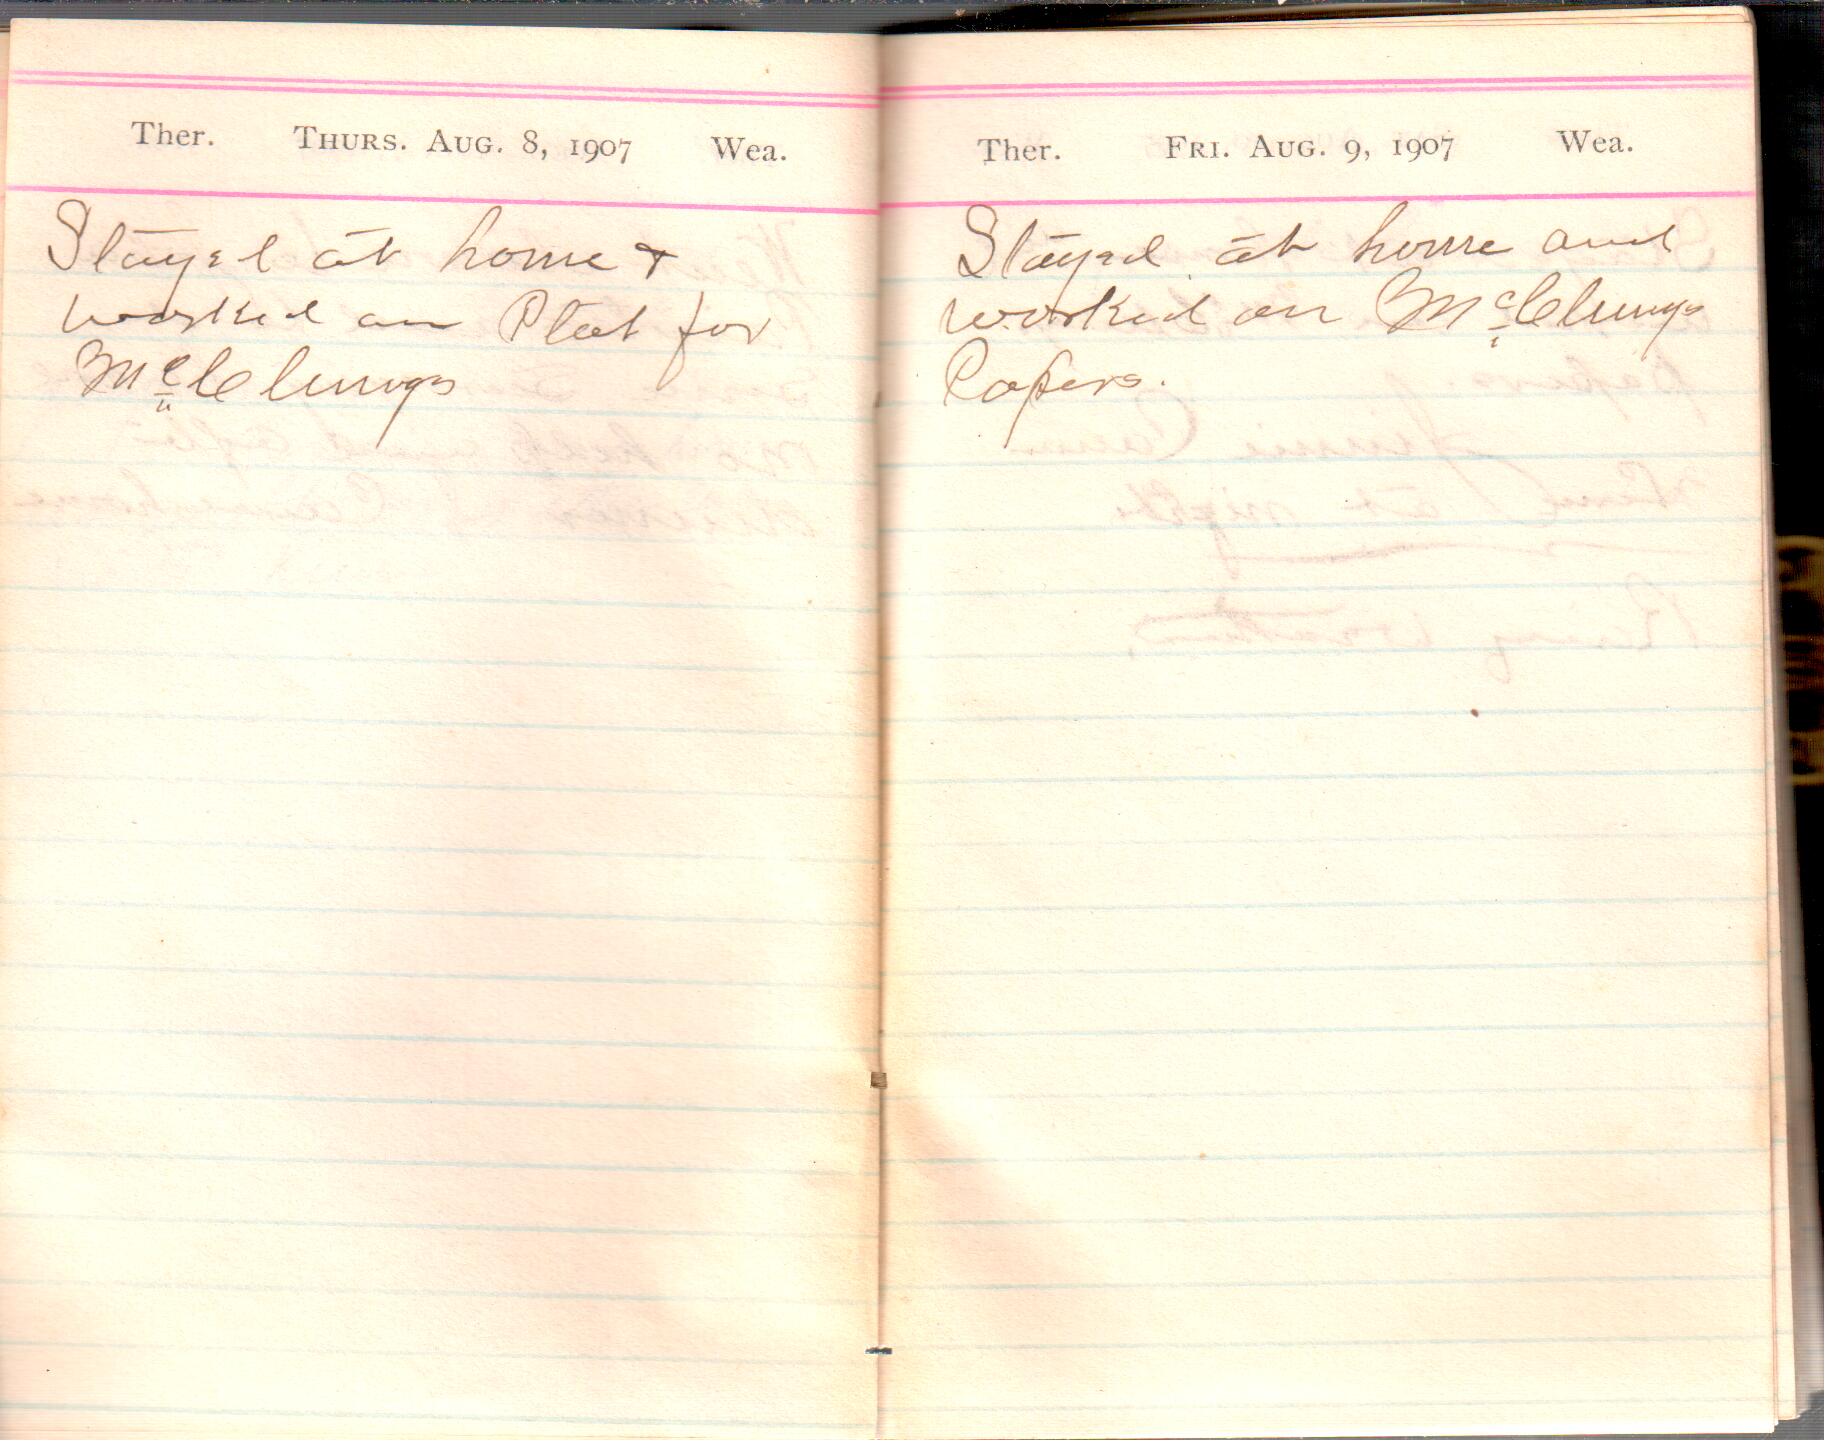 Ther. THURS. AUG. 8, 1907 Wea.
Stayed at home +
worked on Plat for
McClungs
Ther. FRI. AUG. 9, 1907 Wea.
Stayed at home and
worked on McClungs
Papers.